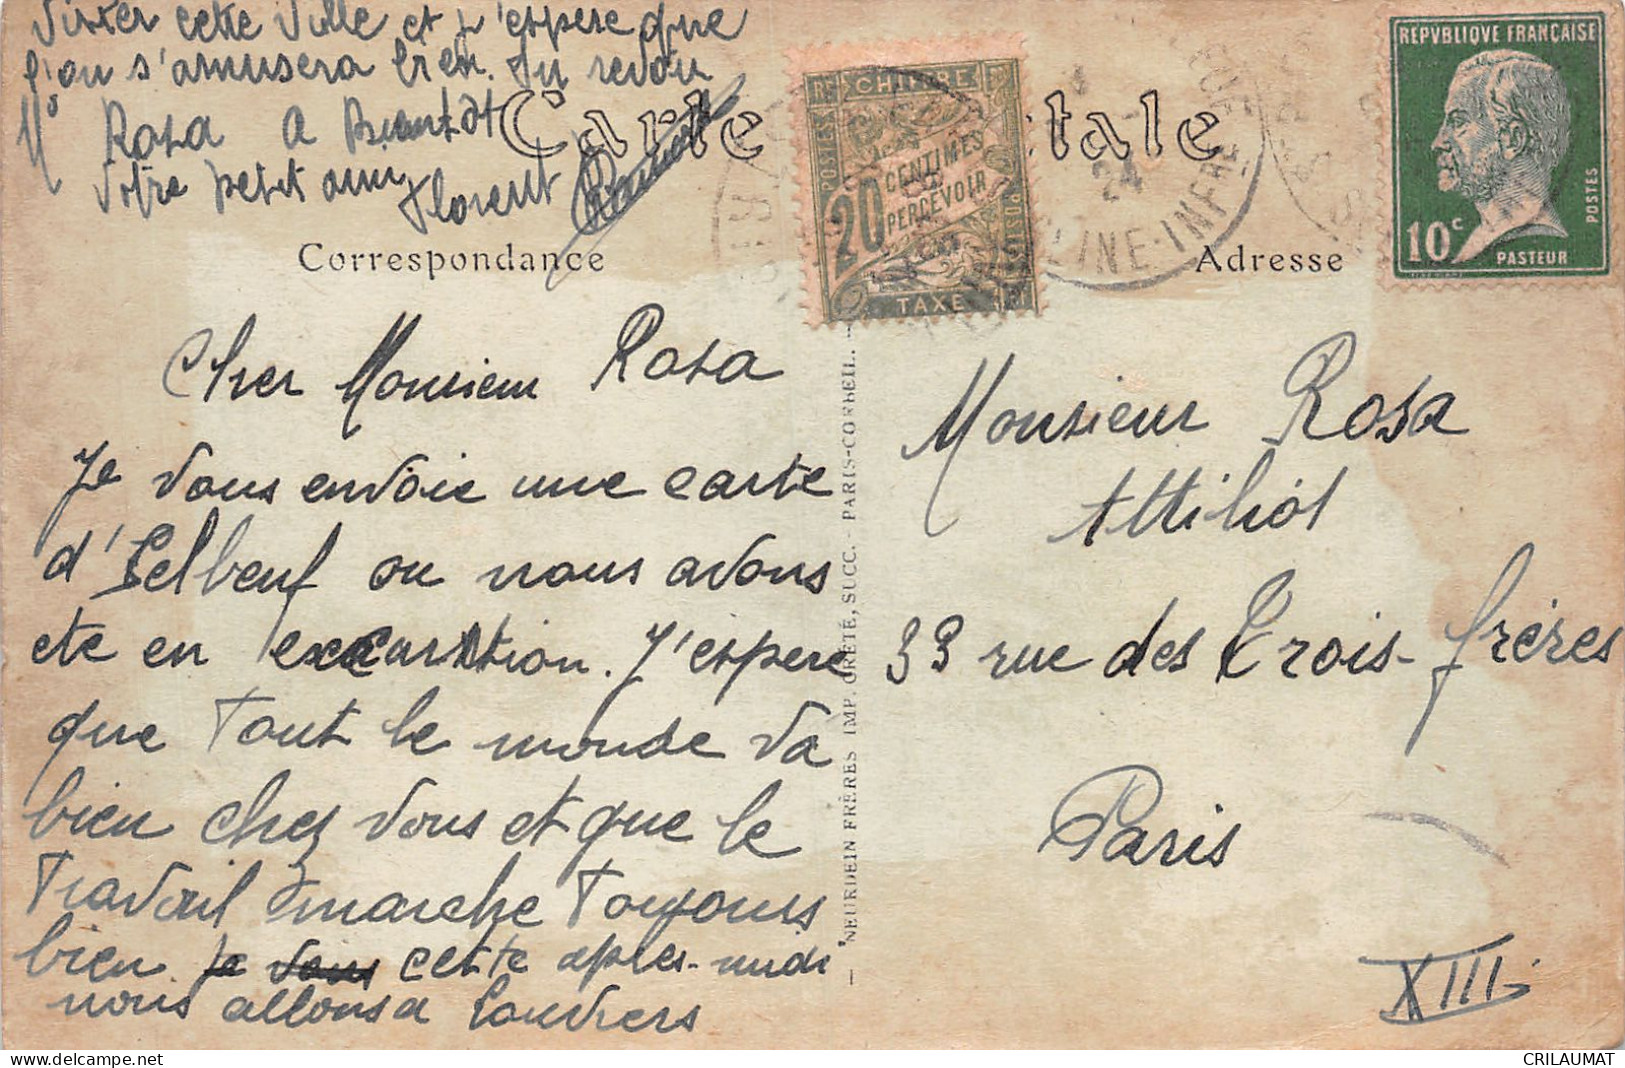 visiter cette ville et j'espere que
l'on s'amusera bien. Au revoir
Mr Rosa A Bientôt
Votre petit ami Florent
Carte Postale
Correspondance
Adresse
CHIFFRE
POSTES
20 CENTIMES
A PERCEVOIR
TAXE
REPVBLIQVE FRANÇAISE
10c
POSTES
PASTEUR
24
INE-INFRE
Cher Monsieur Rosa
Je vous envoie une carte
d'Eelbeuf ou nous avons
ete en excurtion. J'espere
que tout le monde va
bien chez vous et que le
travail marche toujours
bien je vous cette après-midi
nous allons a Louviers
NEURDEIN FRÈRES IMP. CRÉTÉ, SUCC. - PARIS-CORBEIL. -
Monsieur Rosa
Attiliot
33 rue des Trois-frères
Paris
XIII
CRILAUMAT